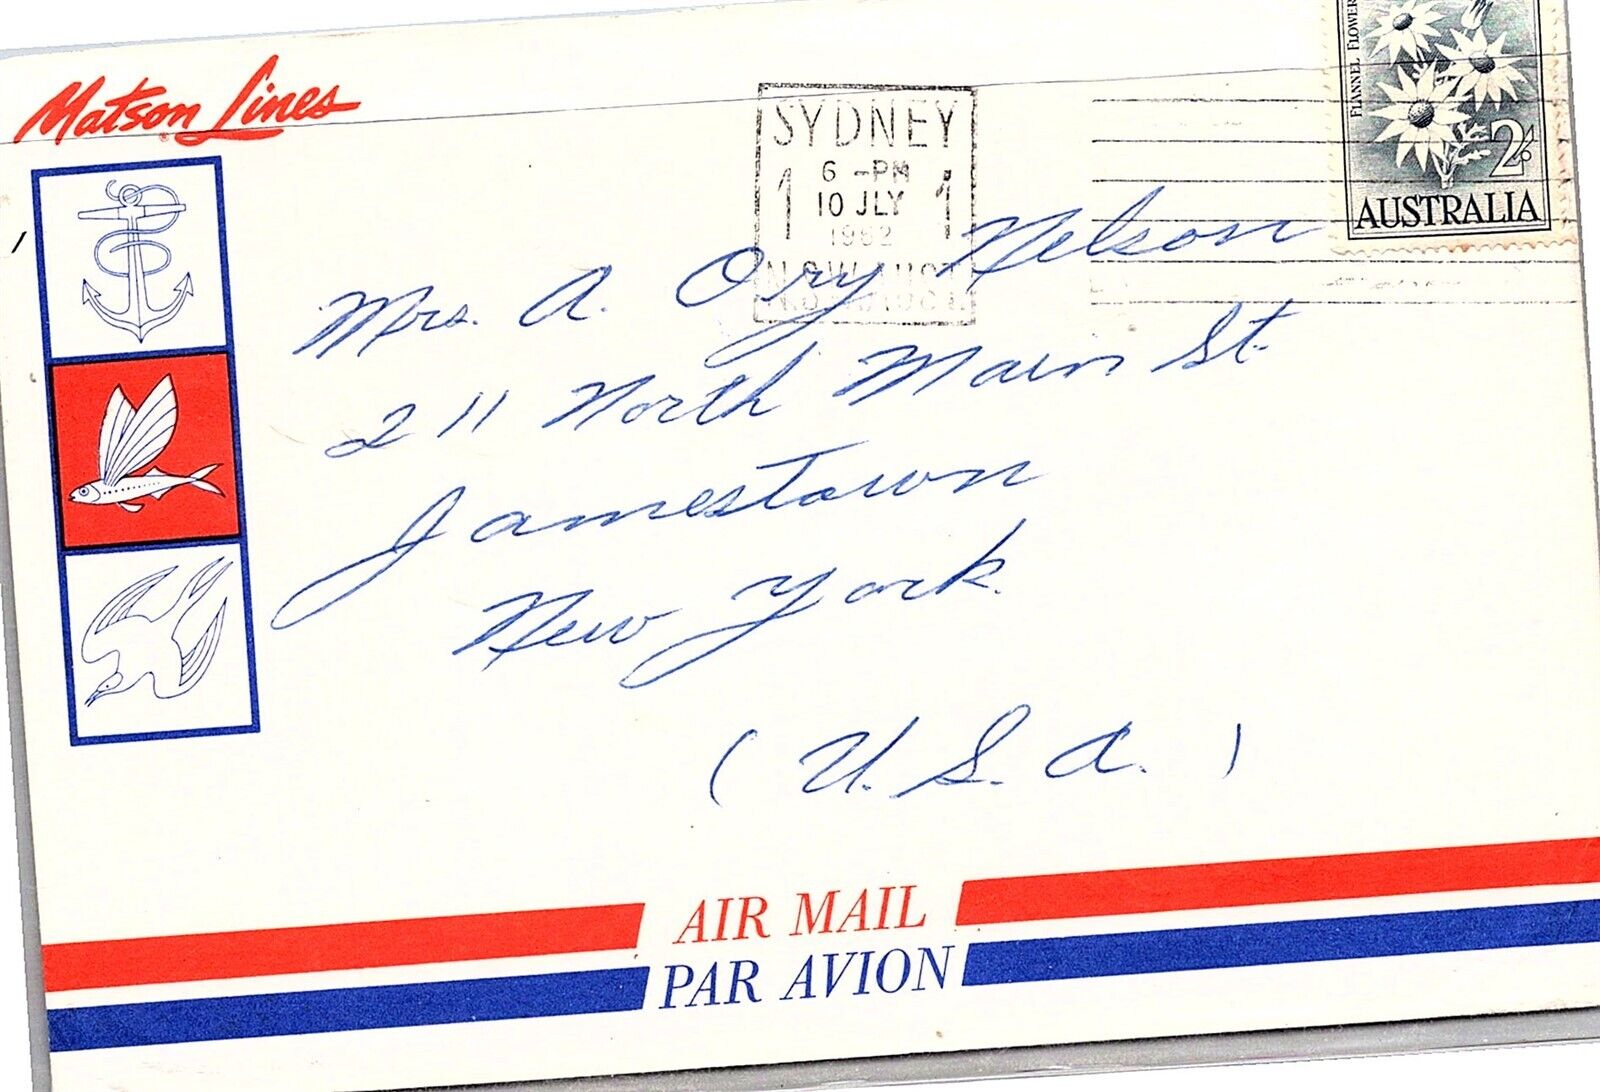 Matson Lines
SYDNEY
6 -PM
1 10 JLY 1
1962
N.S.W. AUST.
FLANNEL FLOWER
2/-
AUSTRALIA
Mrs. A. Ory Nelson
211 North Main St.
Jamestown
New York.
(U.S.A.)
AIR MAIL
PAR AVION